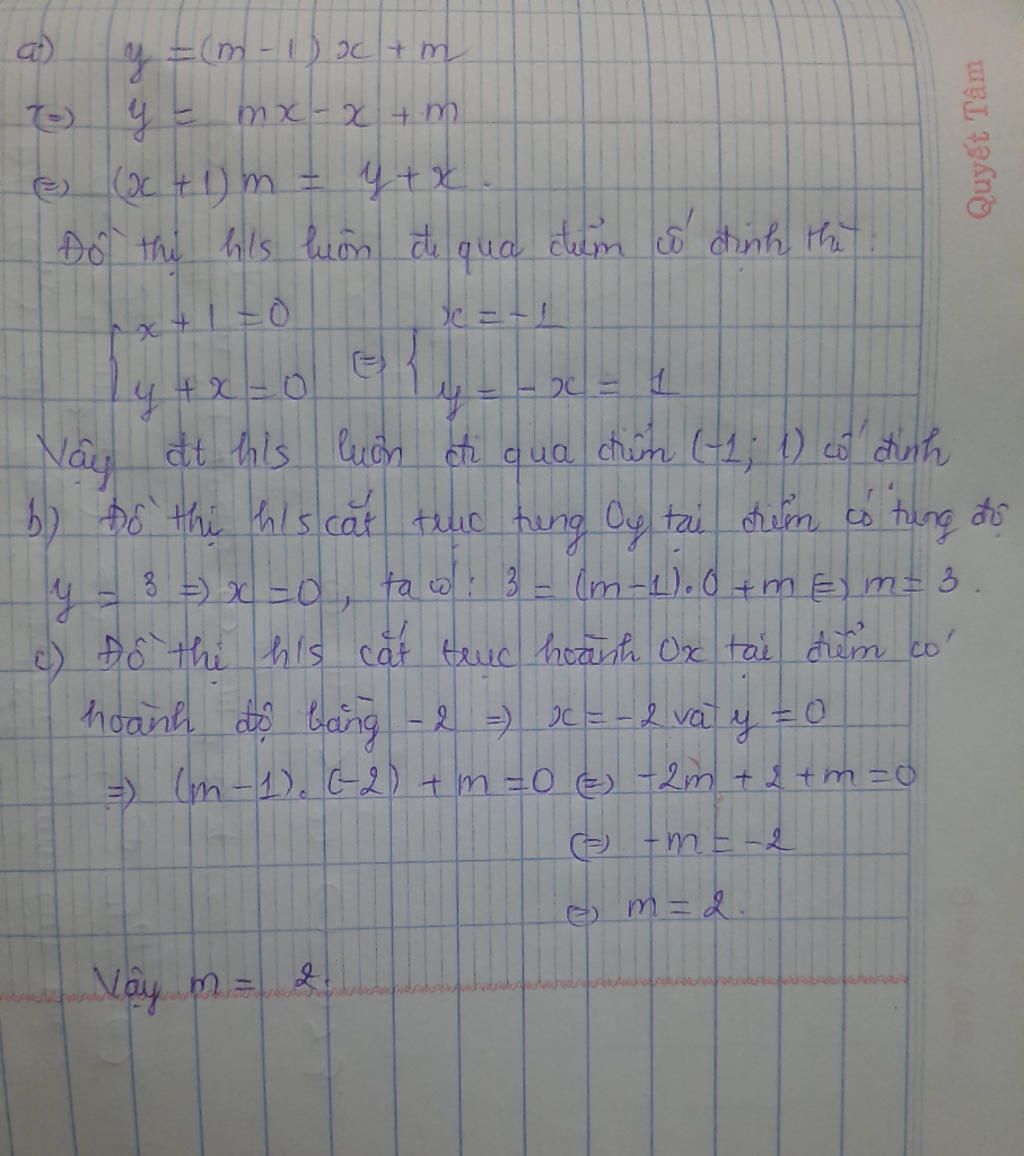 a) y = (m - 1) x + m
(=) y = mx - x + m
(=) (x + 1) m = y + x.
Đồ thị h/s luôn đi qua điểm cố định thì:
{ x + 1 = 0 (=) { x = -1
y + x = 0 y = - x = 1
Vậy đt h/s luôn đi qua điểm (-1; 1) cố định
b) Đồ thị h/s cắt trục tung Oy tại điểm có tung độ
y = 3 => x = 0, ta có: 3 = (m-1).0 + m (=) m = 3.
c) Đồ thị h/s cắt trục hoành Ox tại điểm có
hoành độ bằng -2 => x = -2 và y = 0
=> (m-1).(-2) + m = 0 (=) -2m + 2 + m = 0
(=) -m = -2
(=) m = 2.
Vậy m = 2.
Quyết Tâm